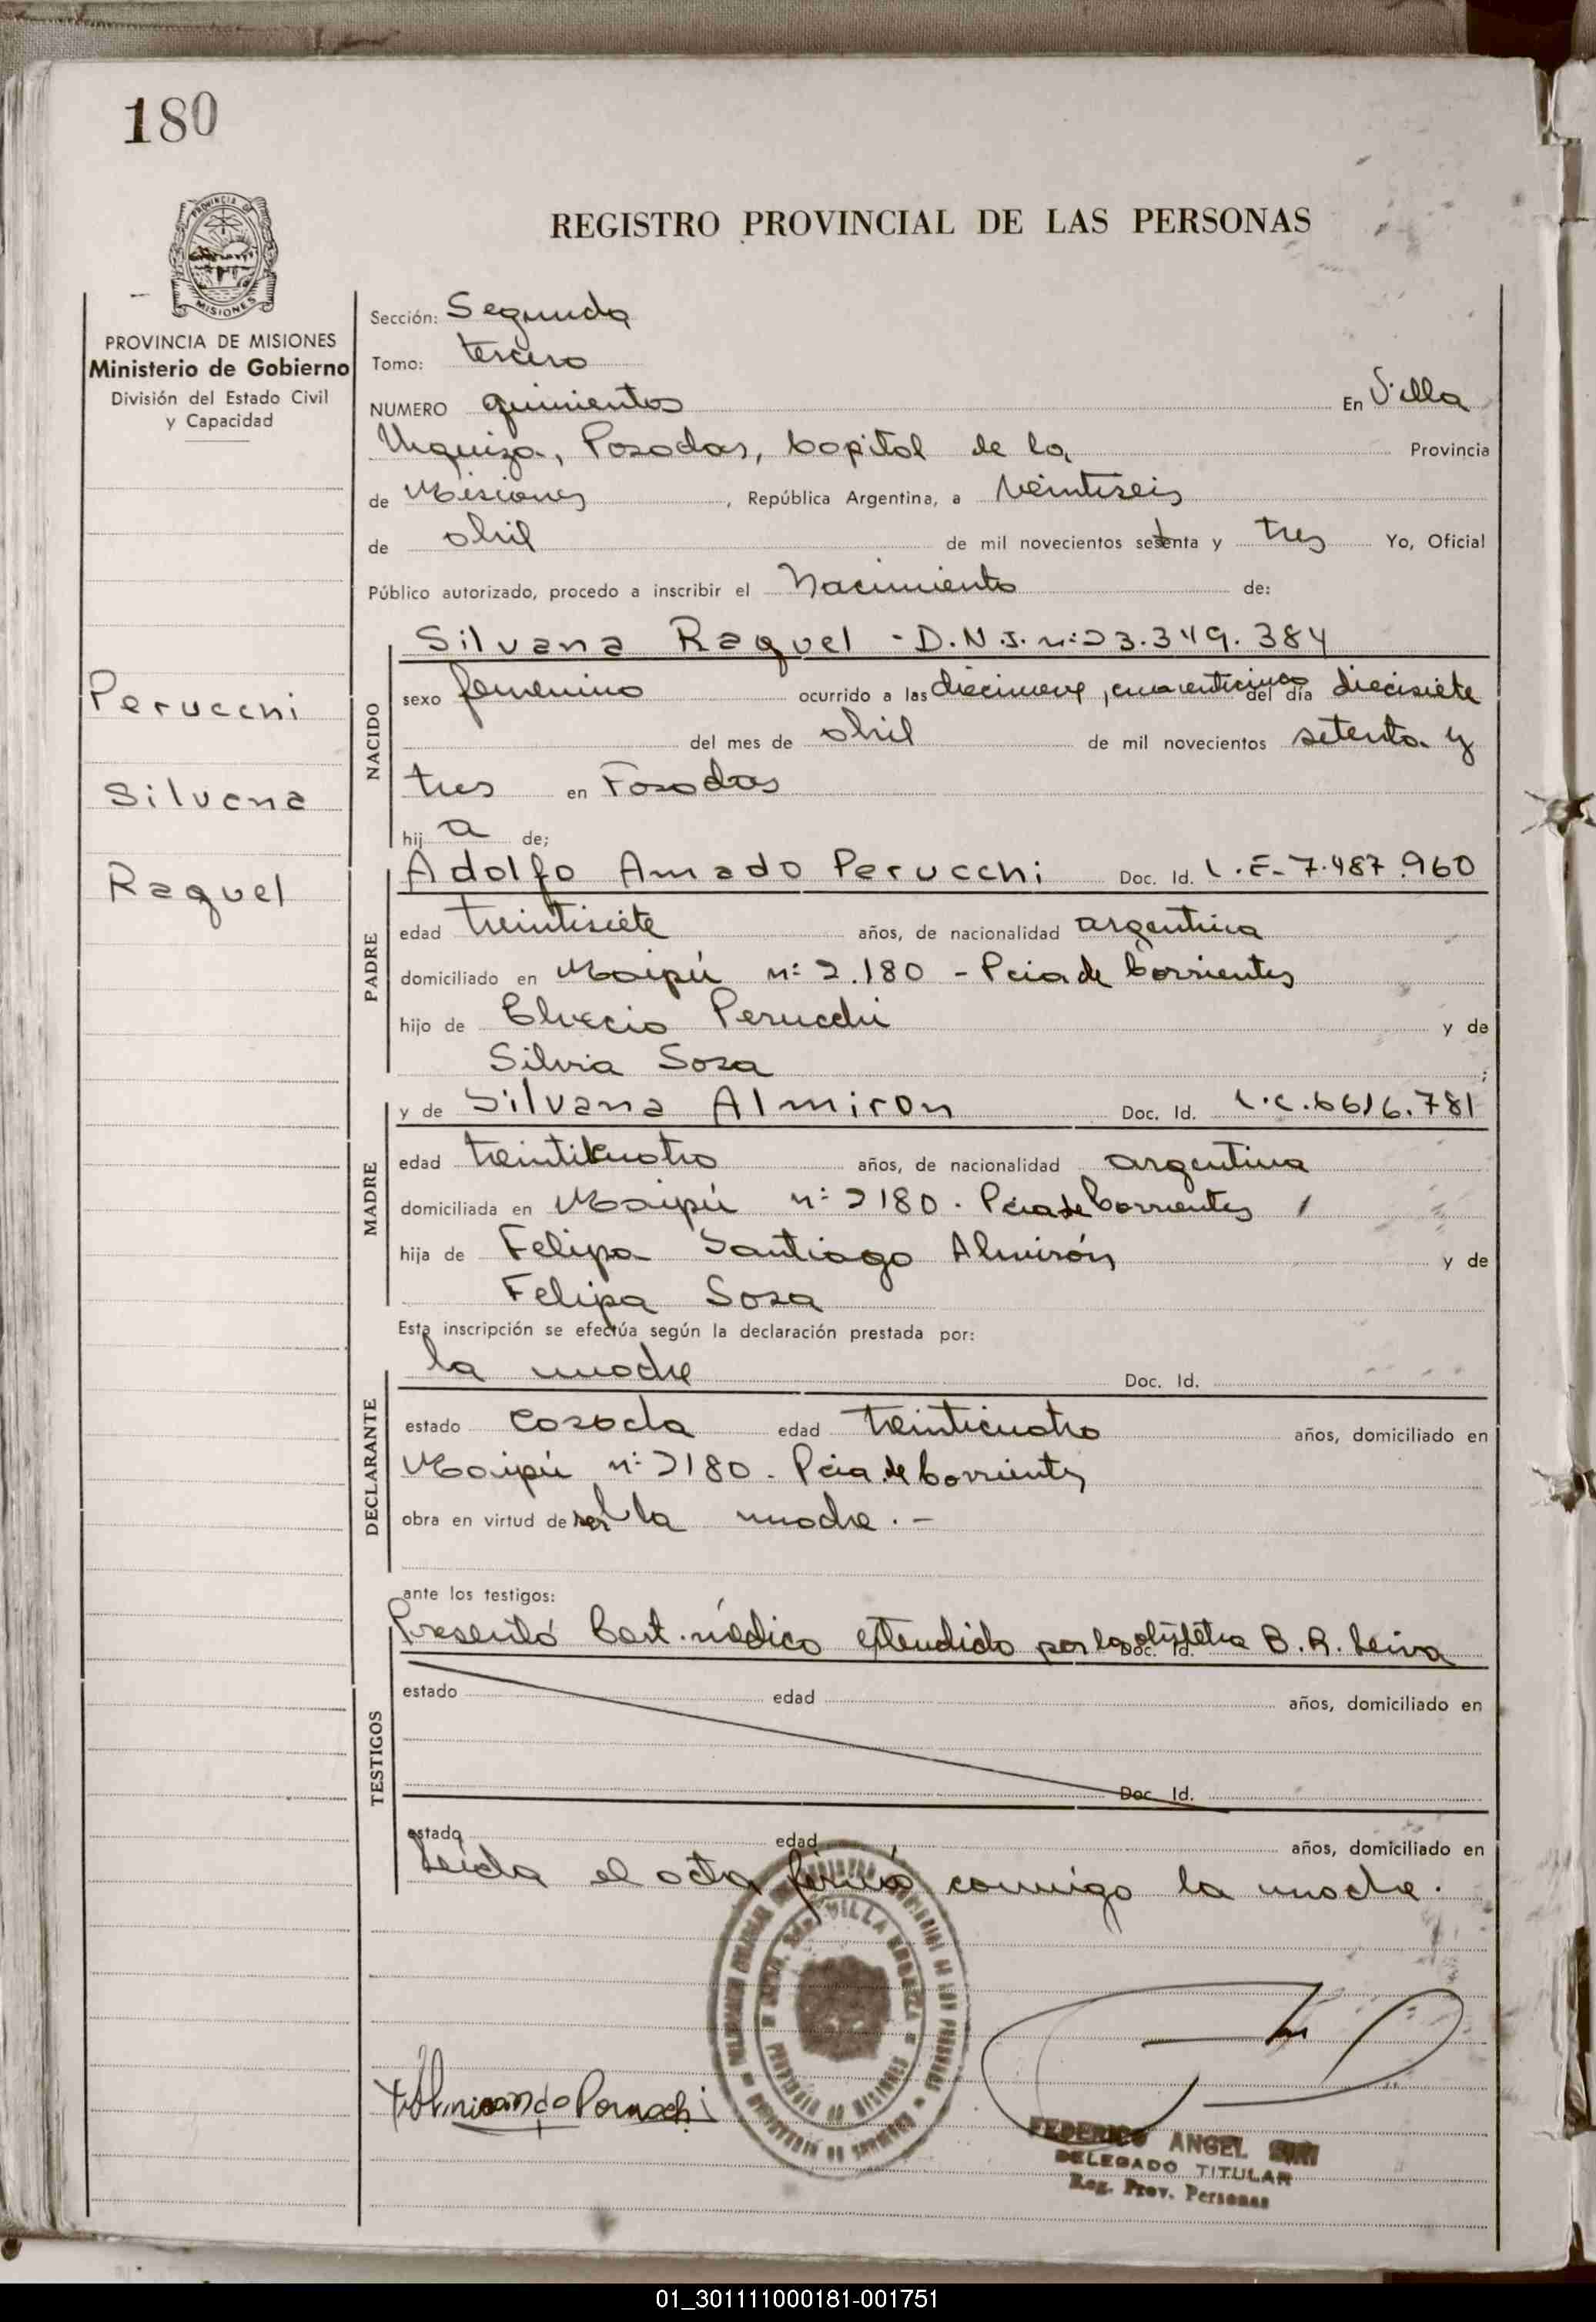 180
PROVINCIA DE
MISIONES
REGISTRO PROVINCIAL DE LAS PERSONAS
PROVINCIA DE MISIONES
Ministerio de Gobierno
División del Estado Civil
y Capacidad
Perucchi
Silvana
Raquel
Sección: Segunda
Tomo: tercero
NUMERO quinientos En Villa
Urquiza, Posadas, Capital de la Provincia
de Misiones, República Argentina, a veintiseis
de abril de mil novecientos setenta y tres Yo, Oficial
Público autorizado, procedo a inscribir el Nacimiento de:
NACIDO
Silvana Raquel - D.N.I. nº 23.349.384
sexo femenino ocurrido a las diecinueve, cuarenticinco del día diecisiete
del mes de abril de mil novecientos setenta y
tres en Posadas
hij a de;
PADRE
Adolfo Amado Perucchi Doc. Id. L.E- 7.487.960
edad treintisiete años, de nacionalidad argentina
domiciliado en Maipú nº 2.180 - Pcia de Corrientes
hijo de Perucchi y de
Silvia Sosa ;
MADRE
y de Silvana Almiron Doc. Id. L.C.6616.781
edad treinticuatro años, de nacionalidad argentina
domiciliada en Maipú nº 2180. Pcia de Corrientes /
hija de Felipa Santiago Almirón y de
Felipa Sosa
Esta inscripción se efectúa según la declaración prestada por:
DECLARANTE
la madre Doc. Id.
estado casada edad treinticuatro años, domiciliado en
Maipú nº 2180. Pcia de Corrientes
obra en virtud de ser la madre. -
ante los testigos:
TESTIGOS
Presentó Cert. médico extendido por la obstetra B.R. Leiva
Doc. Id.
estado edad años, domiciliado en
Doc. Id.
estado edad años, domiciliado en
Leida el acta firmó conmigo la madre.
VILLA URQUIZA
PROVINCIA DE MISIONES
FEDERICO ANGEL
DELEGADO TITULAR
Reg. Prov. Personas
01_301111000181-001751